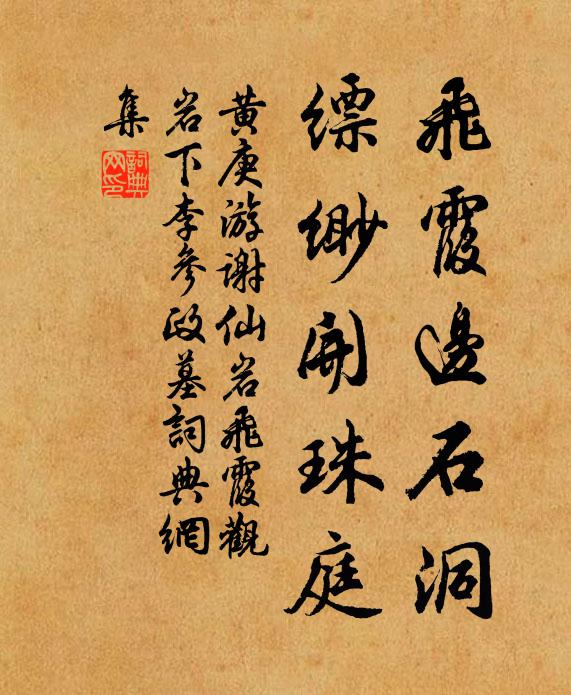 飛霞邊石洞
縹緲開珠庭
黄庚游謝仙岩飛霞觀
岩下李參政墓詞典網
集
詞典網印